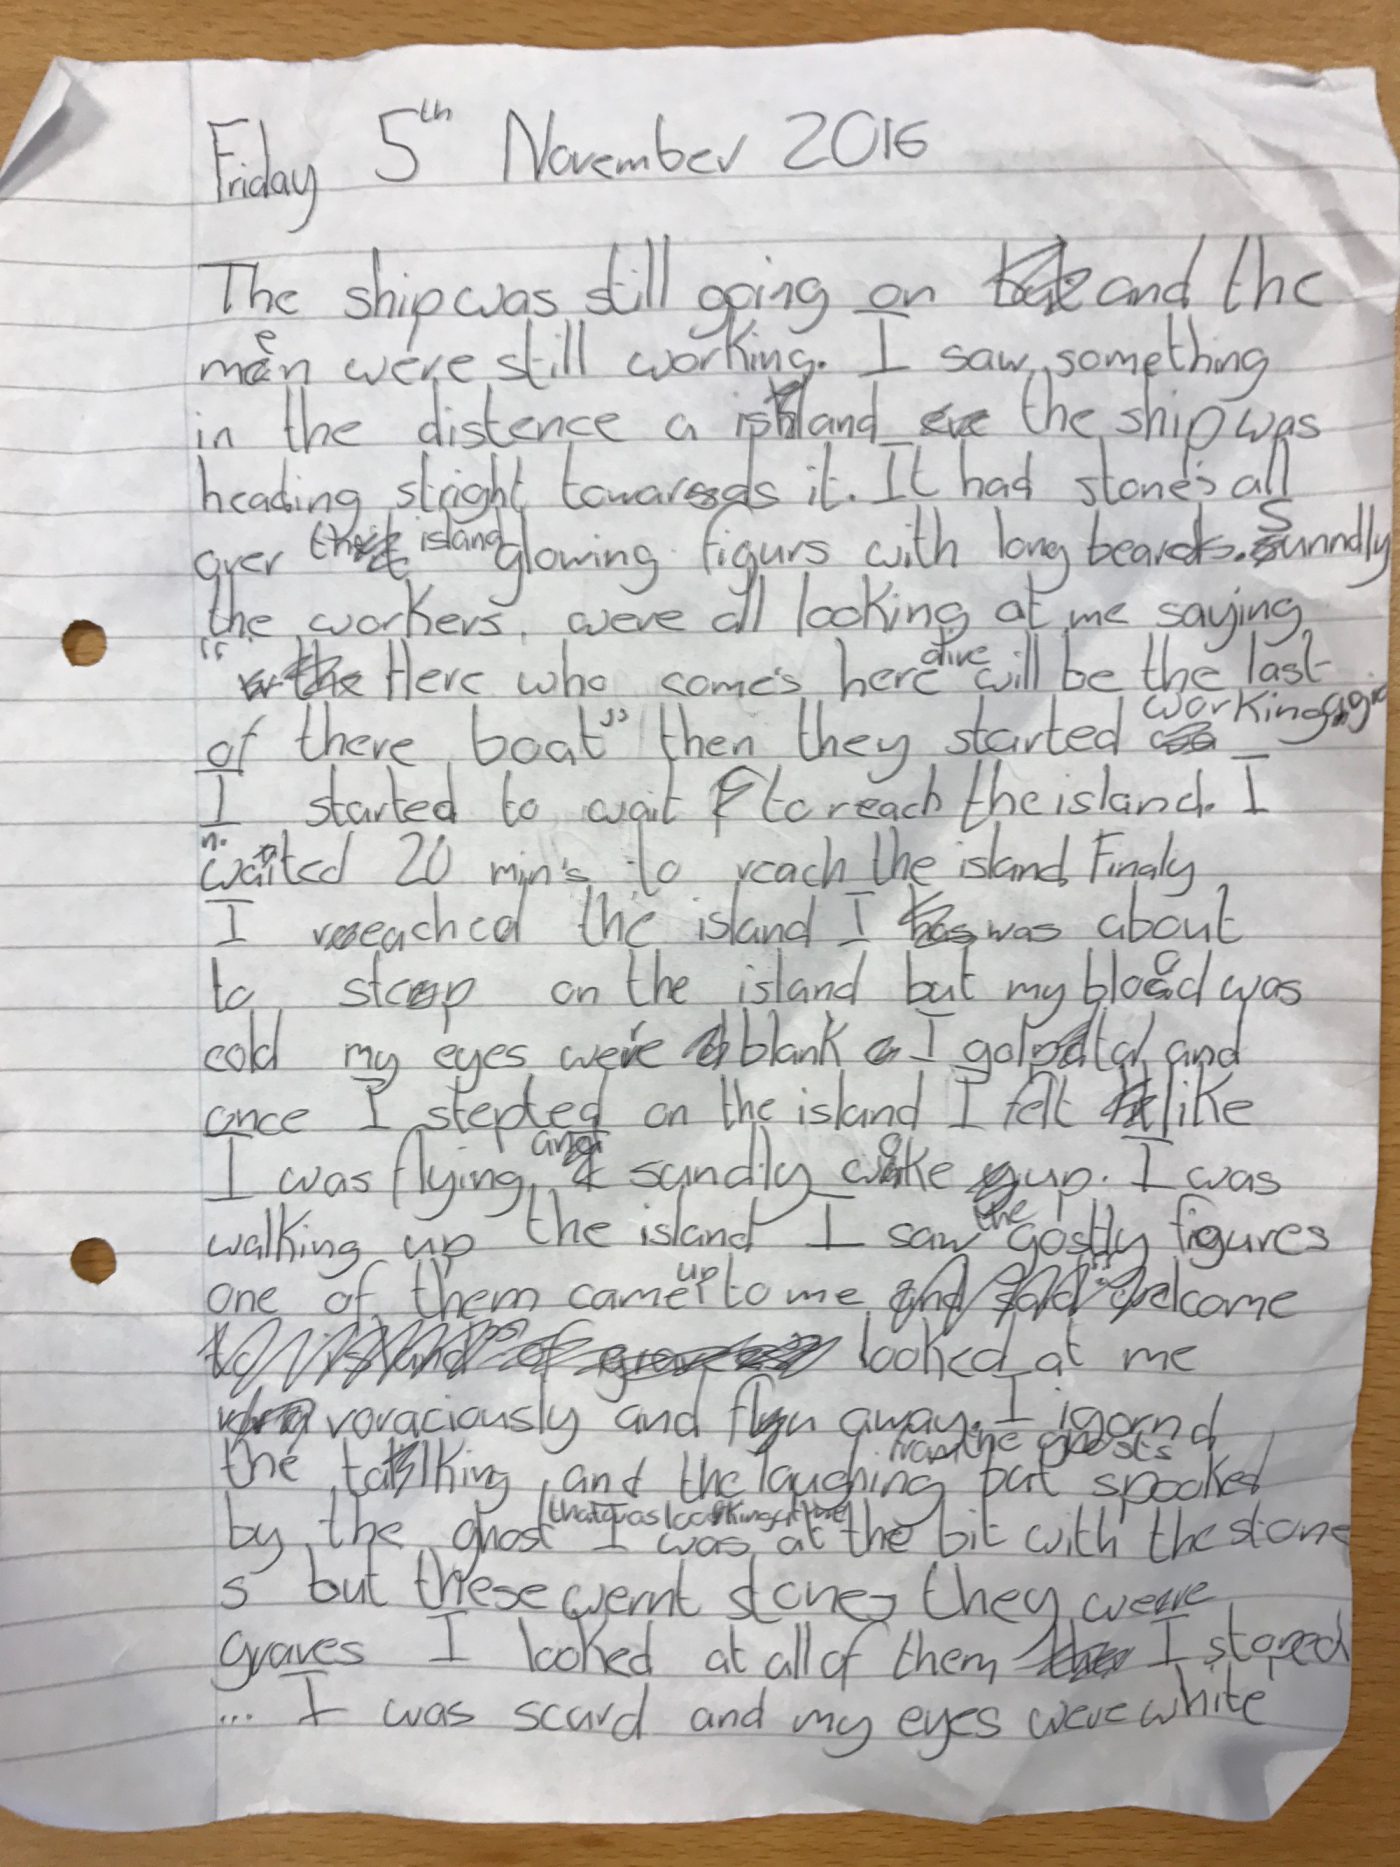 Friday 5th November 2016
The ship was still going on and the
men were still working. I saw something
in the distence a island the ship was
heading stright towards it. It had stone's all
over the island glowing figurs with long beards. Sunndly
the workers were all looking at me saying
"Here who come's here alive will be the last
of there boat" then they started working
I started to wait to reach the island. I
waited 20 min's to reach the island Finaly
I reached the island I was about
to step on the island but my blood was
cold my eyes were blank I and
once I stepted on the island I felt like
I was flying and sundly woke up. I was
walking up the island I saw the gostly figures
one of them came up to me
looked at me
voraciously and flyu away. I igornd
the talking and the laughing from the ghosts but spooked
by the ghost that was looking at me I was at the bit with the stone
s but these wernt stones they were
graves I looked at all of them I stoped
... I was scurd and my eyes were white